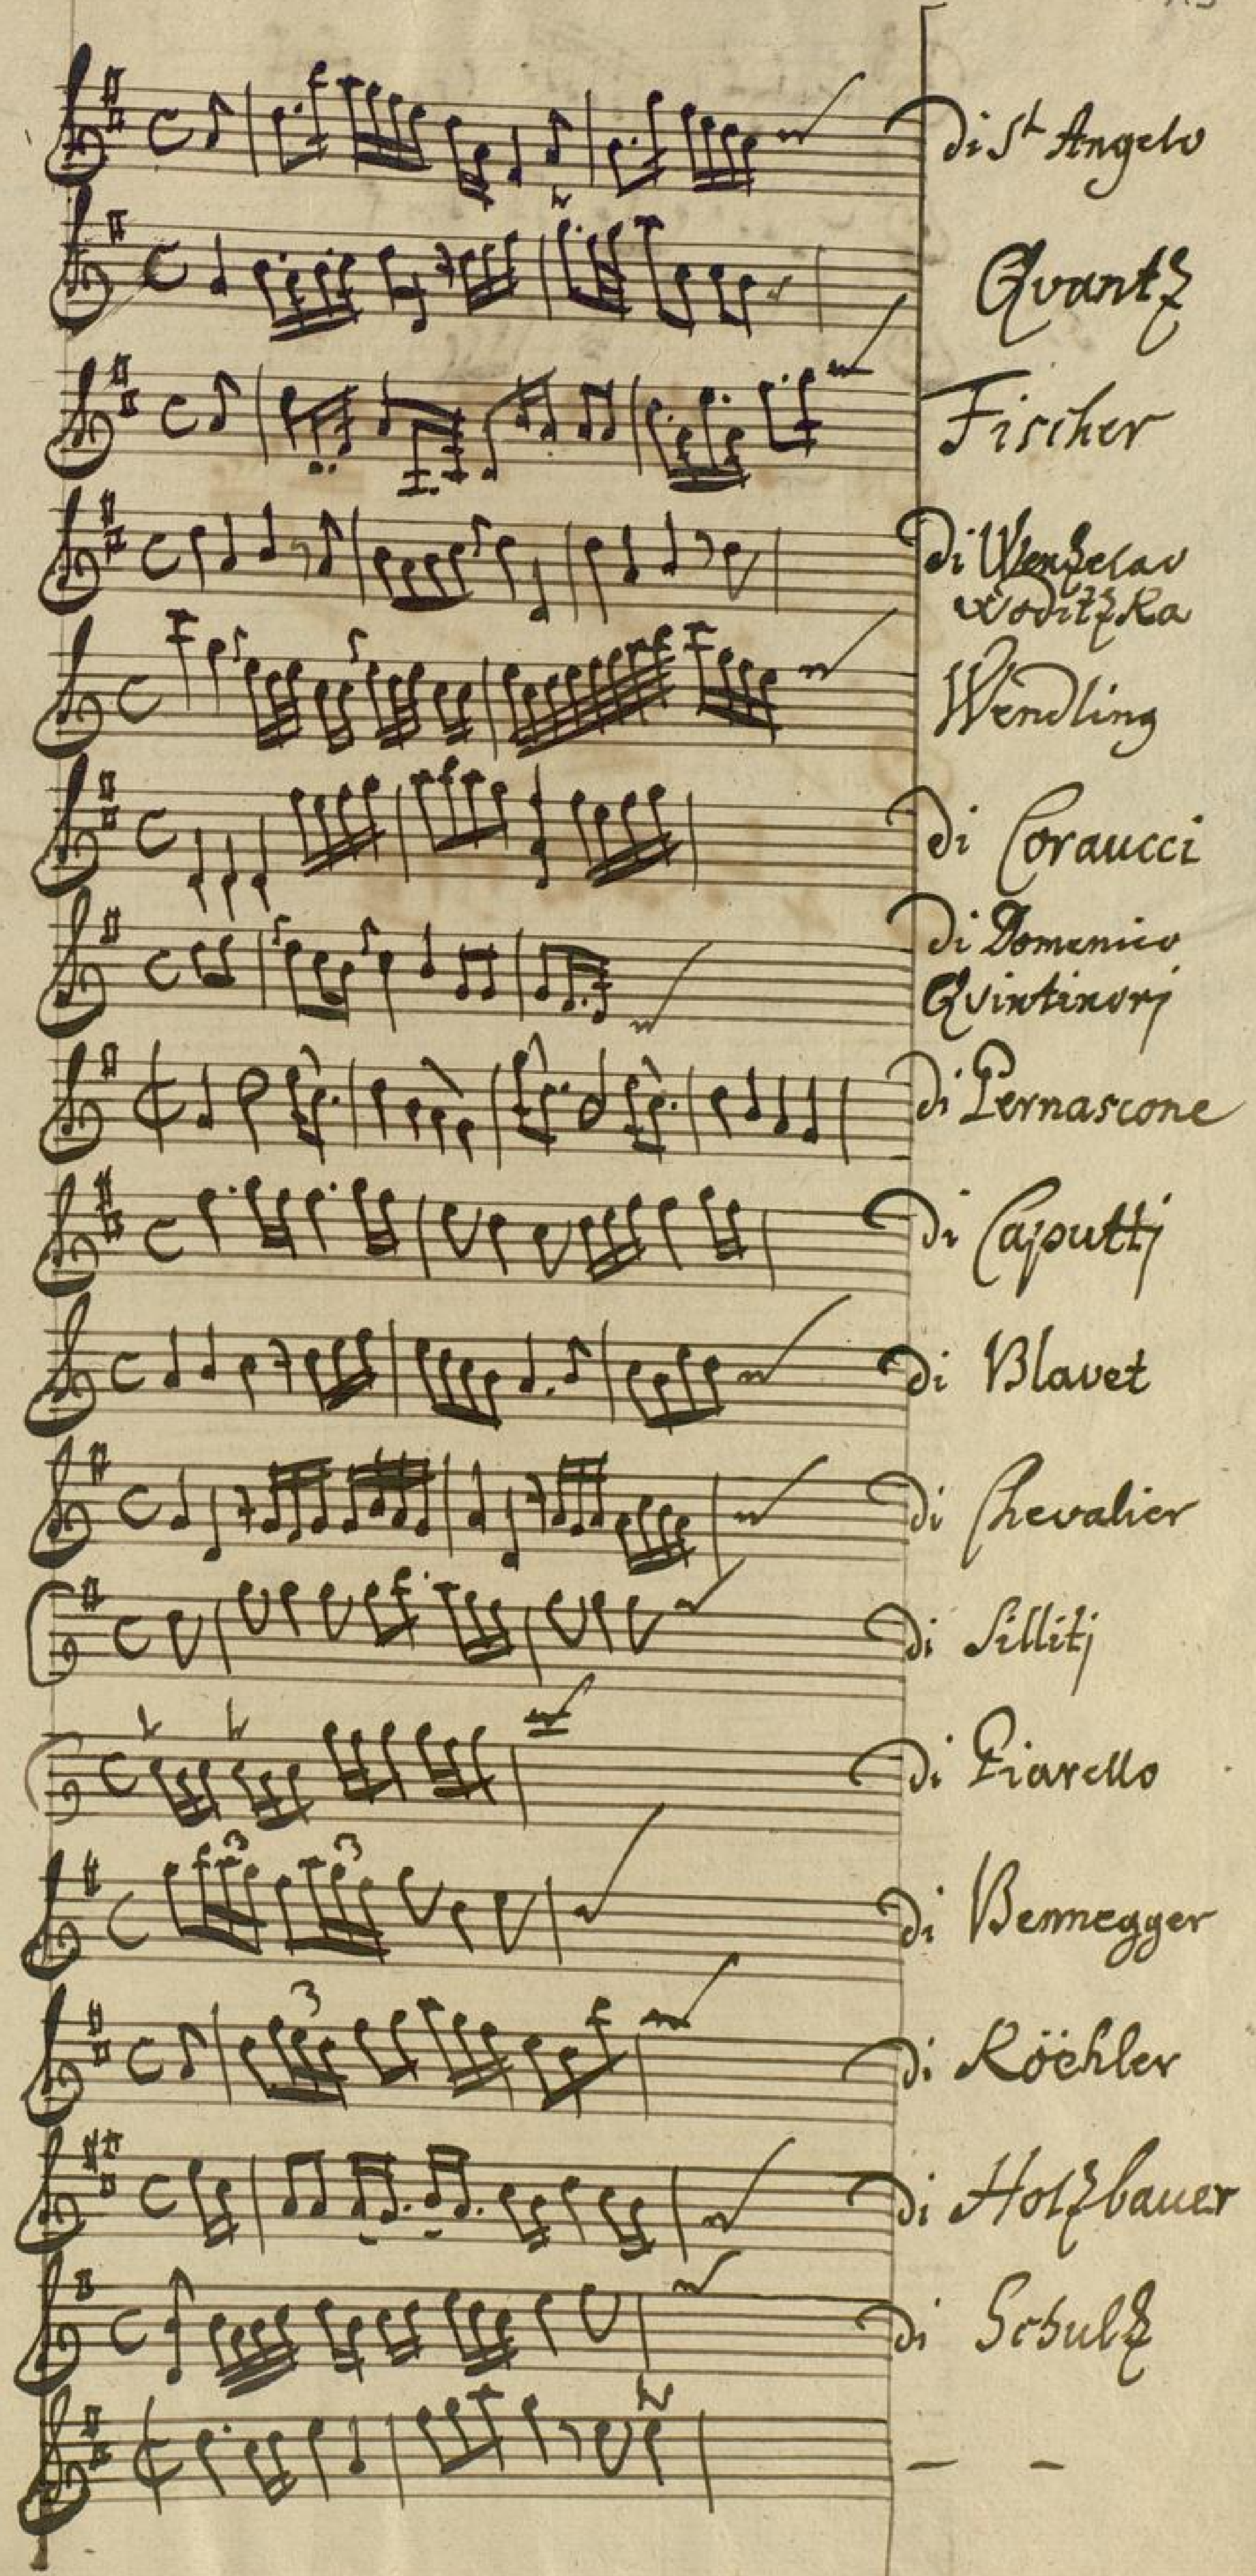 di St Angelo
Qvantz
Fischer
di Wenzelao
Woditzka
Wendling
di Coraucci
di Domenico
Qvintinorj
di Pernascone
di Caputtj
di Blavet
di Chevalier
di Sillitj
di Piarello
3 3
di Bennegger
3
di Röehler
di Holzbauer
di Schulz
- -